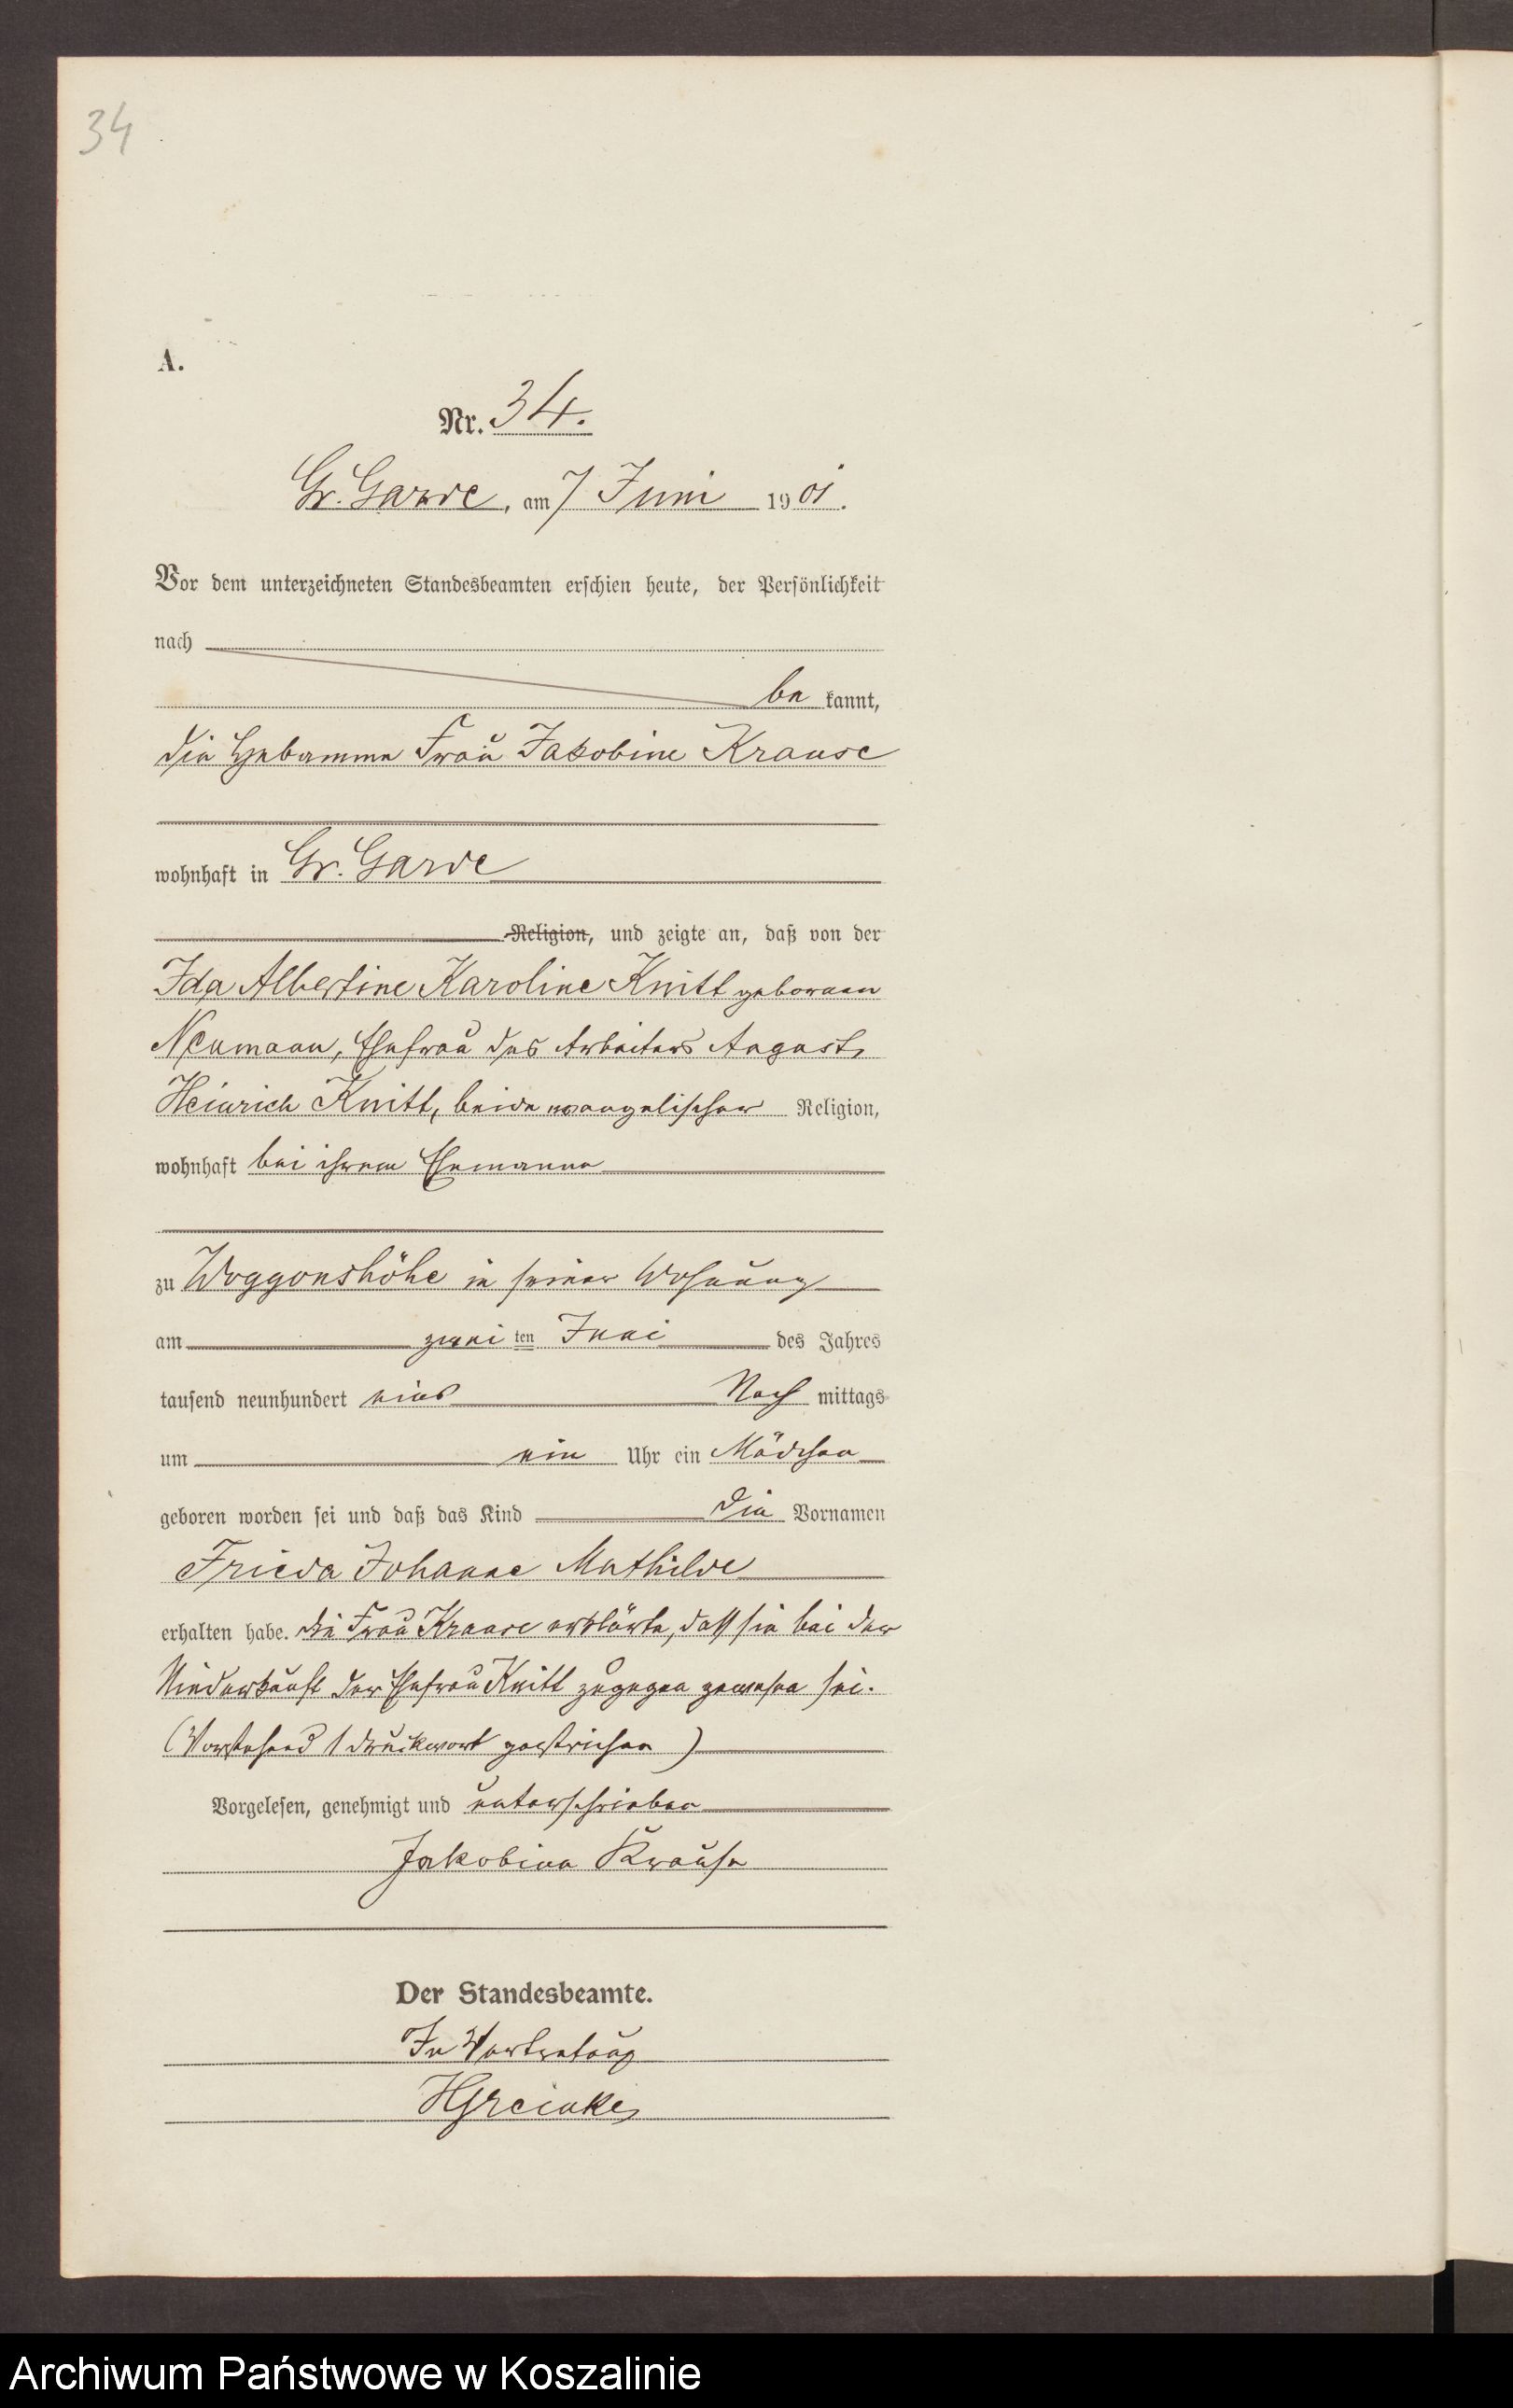 34
A.
Nr. 34.
Gr. Garde, am 7 Juni 1901.
Vor dem unterzeichneten Standesbeamten erschien heute, der Persönlichkeit
nach
be kannt,
die Hebamme Frau Jakobine Krause
wohnhaft in Gr. Garde
Religion, und zeigte an, daß von der
Ida Albertine Karoline Knitt geborenen
Neumann, Ehefrau des Arbeiters August
Heinrich Knitt, beide evangelischer Religion,
wohnhaft bei ihrem Ehemanne
zu Woggonshöhe in seiner Wohnung
am zwei ten Juni des Jahres
tausend neunhundert eins Nach mittags
um ein Uhr ein Mädchen
geboren worden sei und daß das Kind die Vornamen
Frieda Johanne Mathilde
erhalten habe. Die Frau Krause erklärte, daß sie bei der
Niederkunft der Ehefrau Knitt zugegen gewesen sei.
(Vorstehend 1 Druckwort gestrichen)
Vorgelesen, genehmigt und unterschrieben
Jakobine Krause
Der Standesbeamte.
In Vertretung
HGreinke
Archiwum Państwowe w Koszalinie